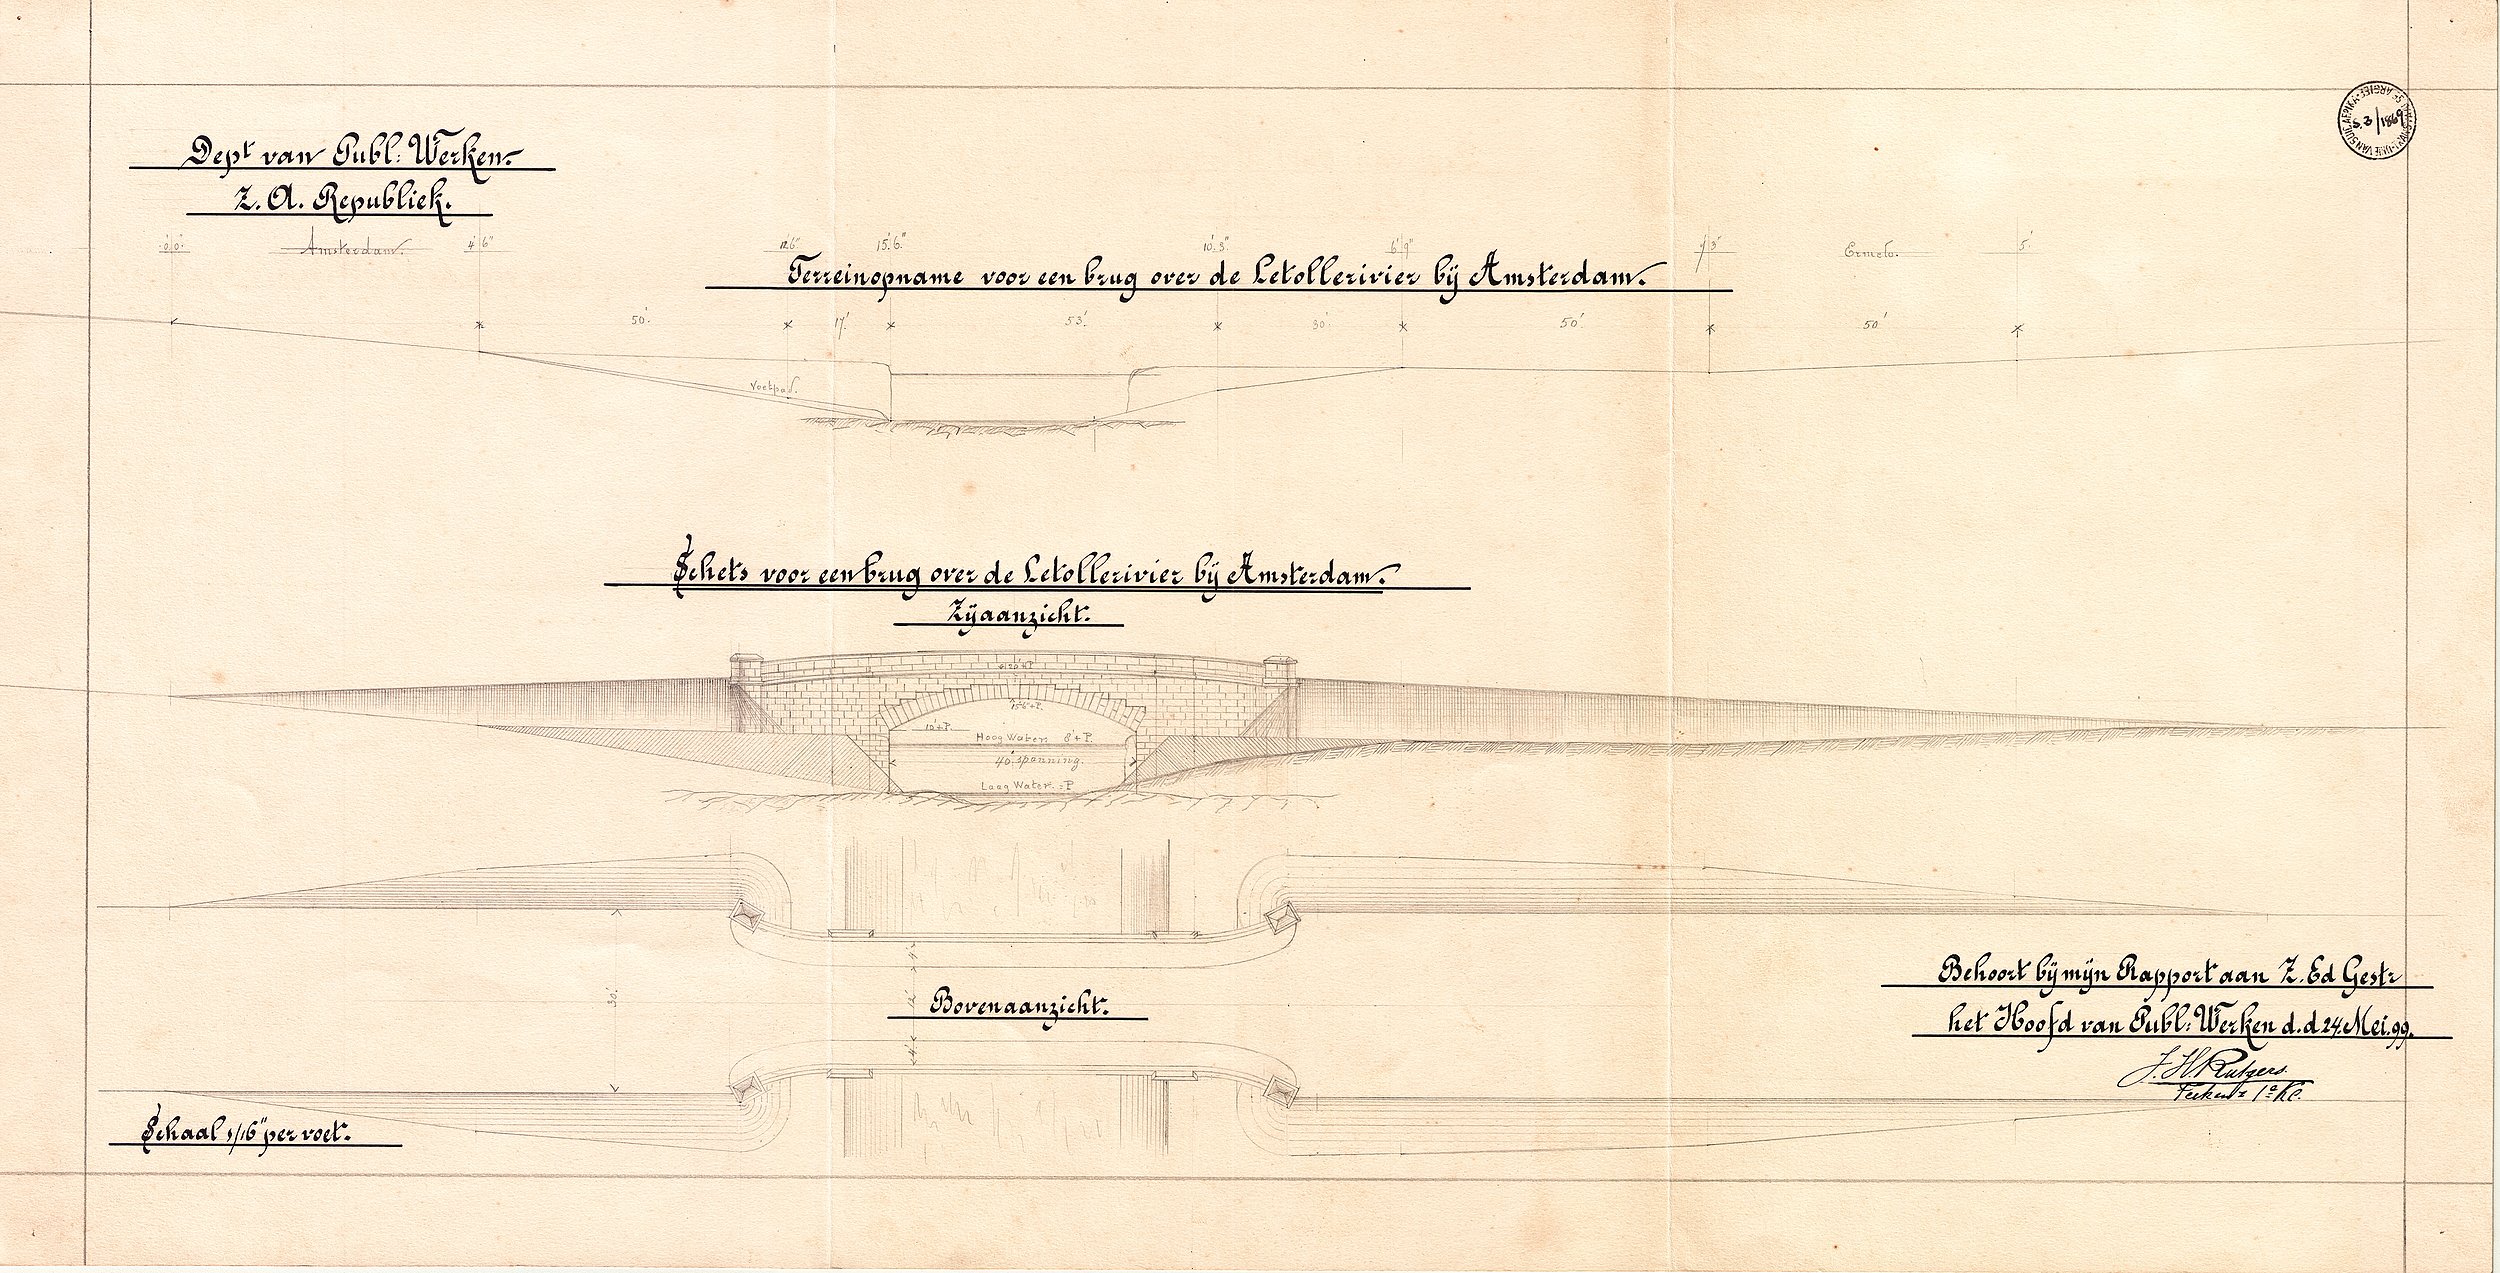 Dept van Publ: Werken.
Z. A. Republiek.
S.3/1869
0' 0"
Amsterdam.
4' 6"
12' 6"
15' 6"
10' 3"
6' 9"
Ermelo.
5'
Terreinopname voor een brug over de Letollerivier bij Amsterdam.
50'
17'
53'
30'
50'
50'
Voetpad.
Schets voor een brug over de Letollerivier bij Amsterdam.
Zijaanzicht.
15'6"+P.
10'+P.
Hoog Water: 8'+P.
40' spanning.
Laag Water: =P
30'
4'
12'
4'
Bovenaanzicht.
Behoort bij mijn Rapport aan Z. Ed Gestr
het Hoofd van Publ: Werken d.d 24. Mei. 99.
J. H. Rutgers.
Schaal 1/16" per voet.